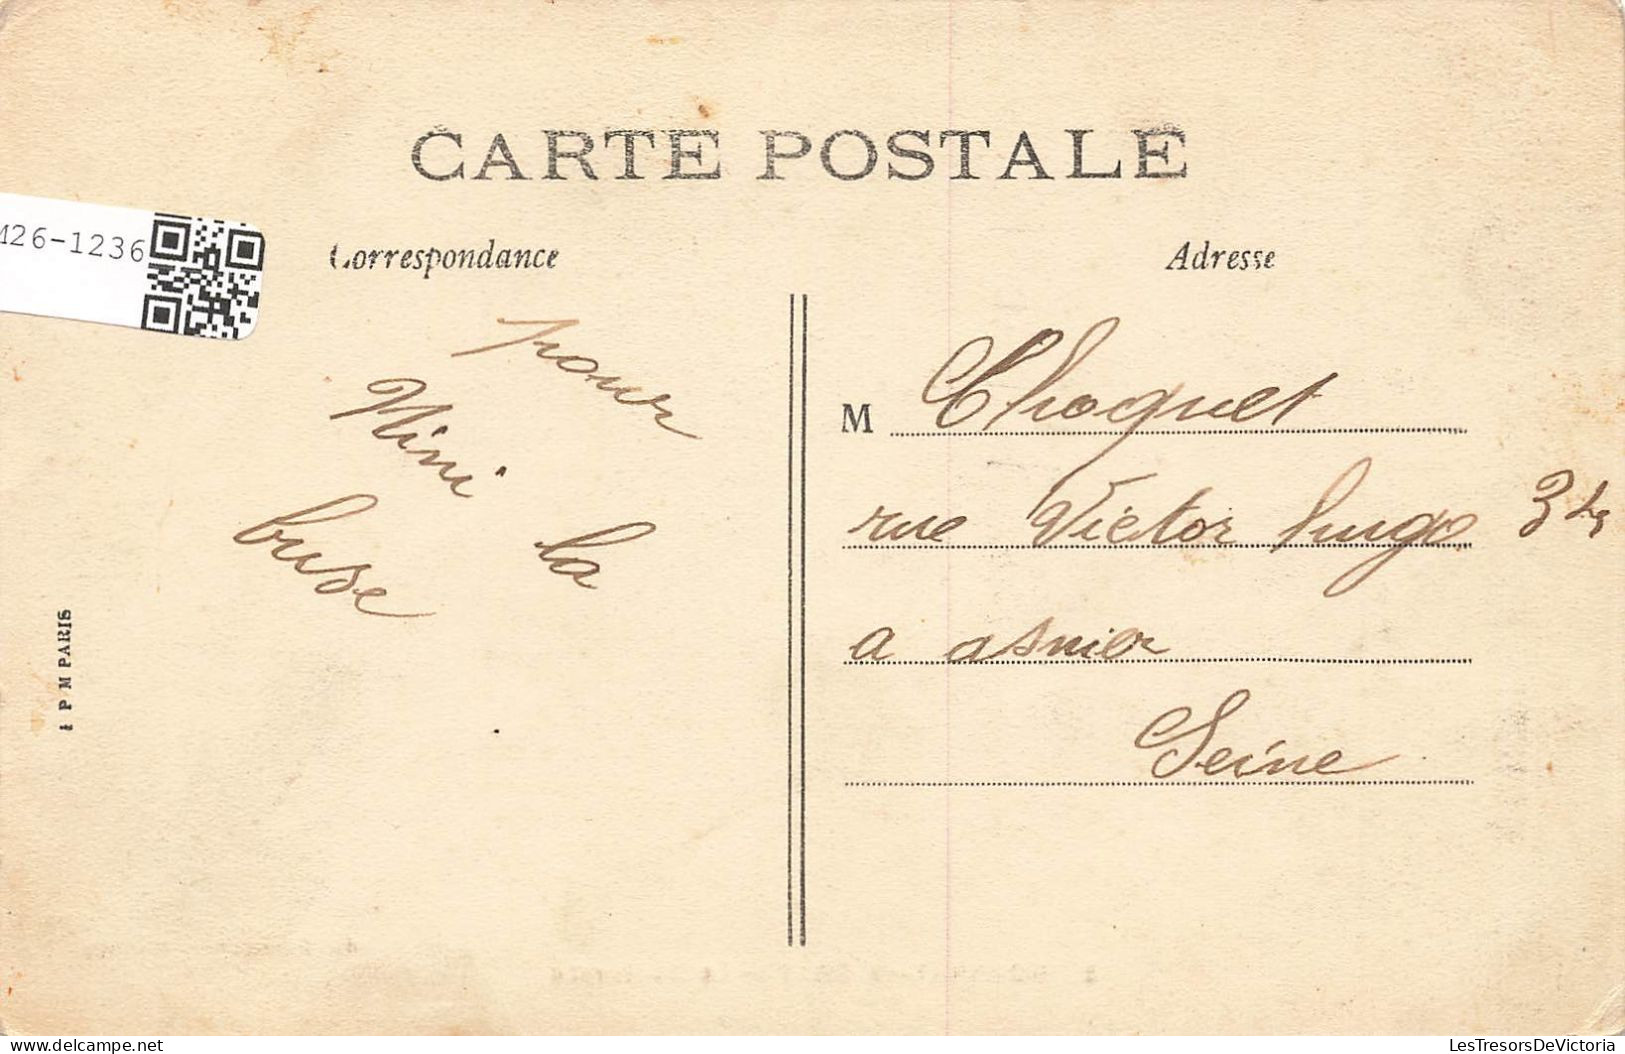 CARTE POSTALE
M26-1236
Correspondance
Adresse
pour
Mimi la
buse
M Choquet
rue Victor hugo 3
a asnier
Seine
I P M PARIS
delcampe.net
LesTresorsDeVictoria